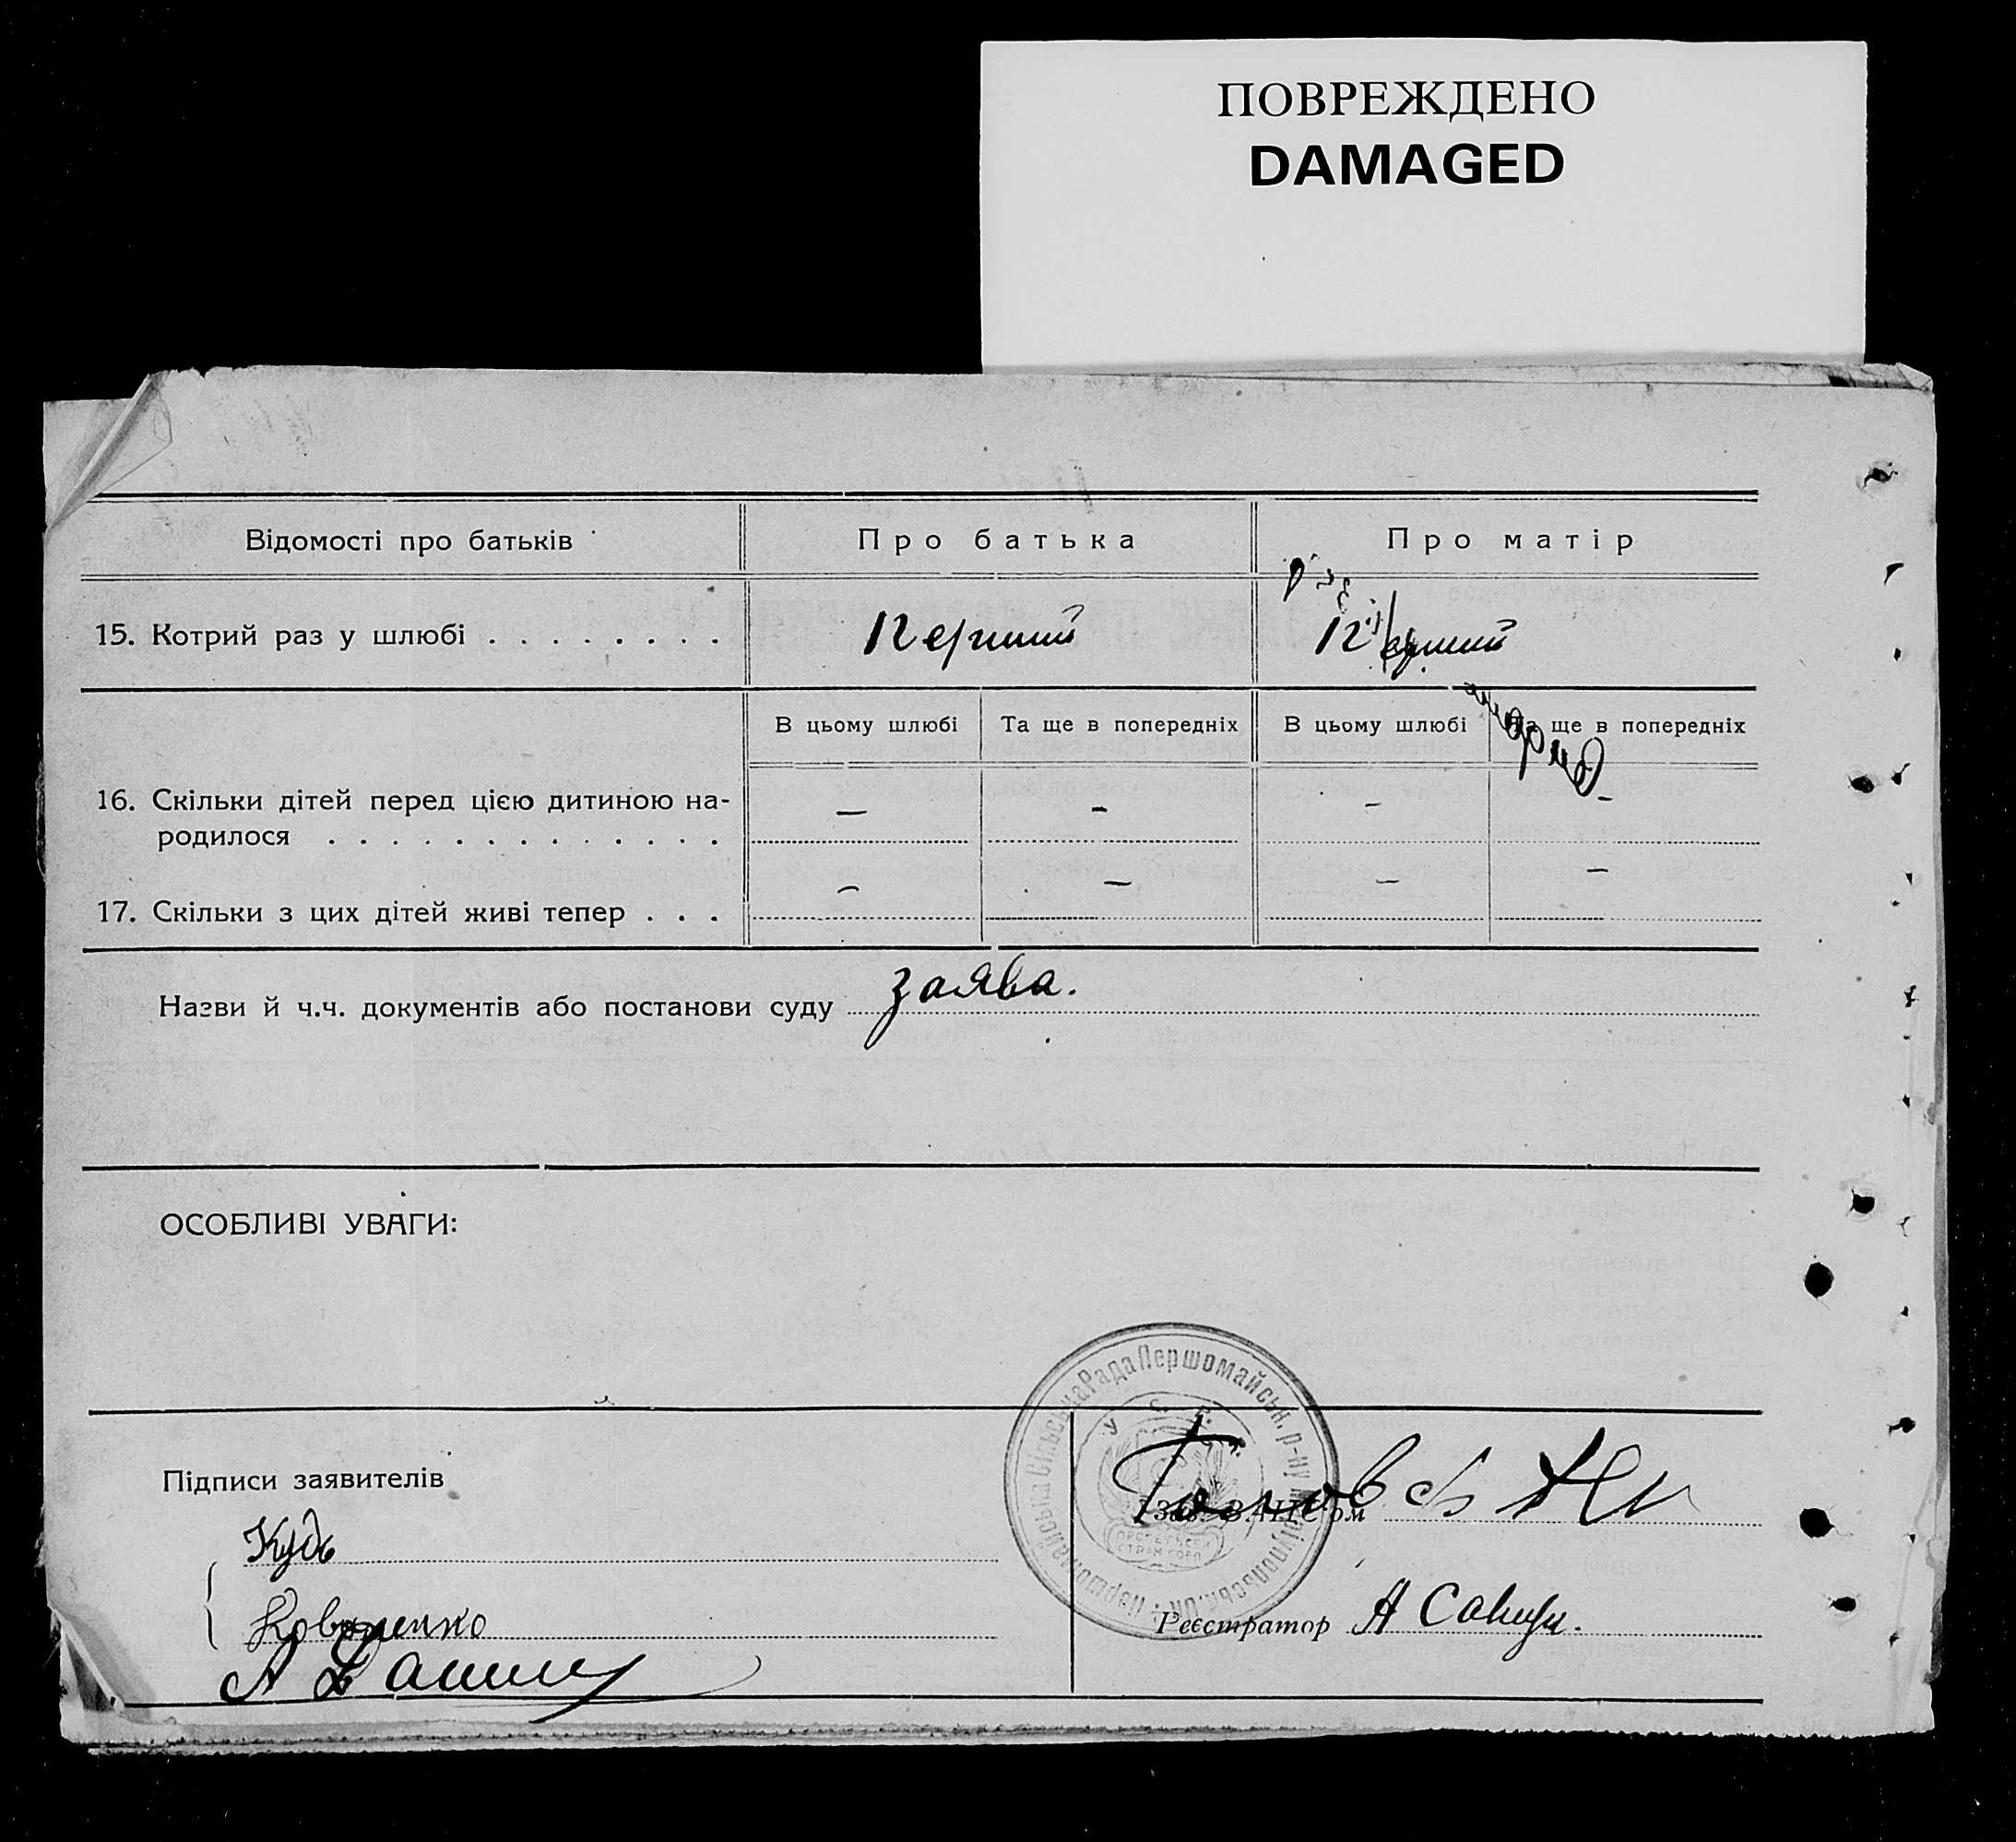 ПОВРЕЖДЕНО
DAMAGED
Відомості про батьків
Про батька
Про матір
15. Котрий раз у шлюбі . . . . . . . .
Перший
Перший
В цьому шлюбі
Та ще в попередніх
В цьому шлюбі
Та ще в попередніх
16. Скільки дітей перед цією дитиною на-
родилося . . . . . . . . . . . . .
— - - -
17. Скільки з цих дітей живі тепер . . .
— — — —
Назви й ч.ч. документів або постанови суду заява.
ОСОБЛИВІ УВАГИ:
Рада Першомайськ. р-ну
У. С. Р. Р.
Підписи заявителів
Зав. ЗАГС'ом
Кудь
Коваленко
Реєстратор А